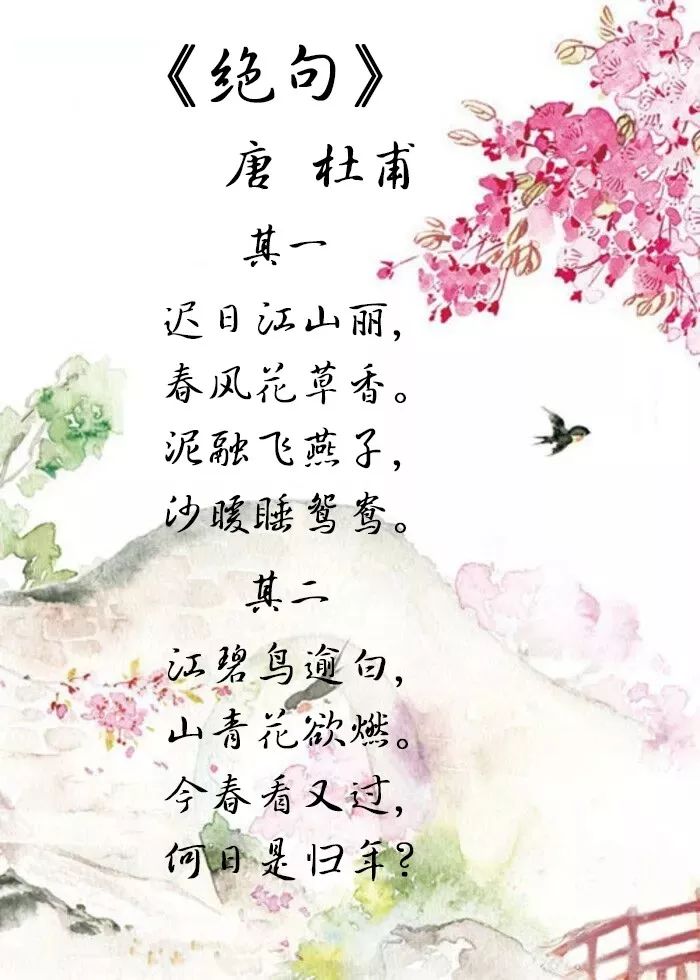 《绝句》
唐 杜甫
其一
迟日江山丽，
春风花草香。
泥融飞燕子，
沙暖睡鸳鸯。
其二
江碧鸟逾白，
山青花欲燃。
今春看又过，
何日是归年？